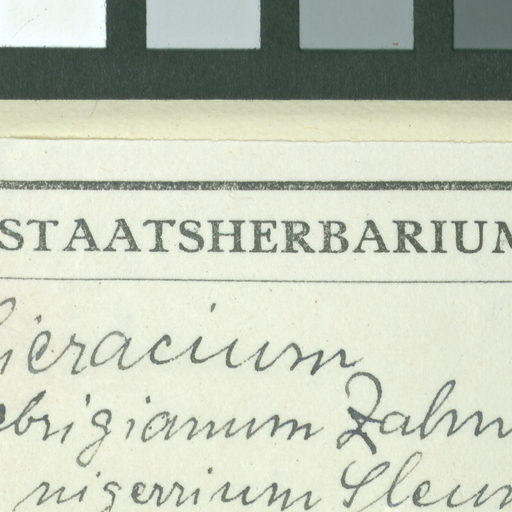 STAATSHERBARIUM
Hieracium
brigianum Zahn
nigerrium Sleum